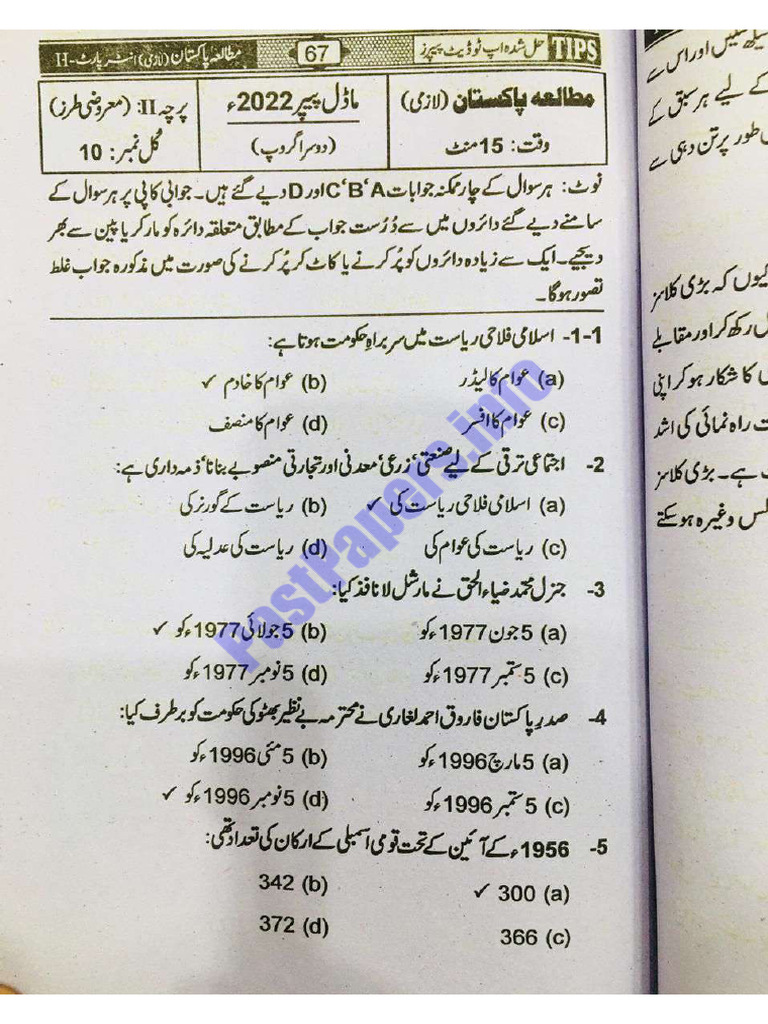 TIPS حل شدہ اپ ٹو ڈیٹ پیپرز 67 مطالعہ پاکستان (لازمی) انٹر پارٹ-II
مطالعہ پاکستان (لازمی) ماڈل پیپر 2022ء پرچہ II: (معروضی طرز)
وقت: 15 منٹ (دوسرا گروپ) کل نمبر: 10
نوٹ: ہر سوال کے چار ممکنہ جوابات A‘B‘C اور D دیے گئے ہیں۔ جوابی کاپی پر ہر سوال کے
سامنے دیے گئے دائروں میں سے دُرست جواب کے مطابق متعلقہ دائرہ کو مارکر یا پین سے بھر
دیجیے۔ ایک سے زیادہ دائروں کو پُر کرنے یا کاٹ کر پُر کرنے کی صورت میں مذکورہ جواب غلط
تصور ہوگا۔
1-1- اسلامی فلاحی ریاست میں سربراہِ حکومت ہوتا ہے:
(a) عوام کا لیڈر (b) عوام کا خادم ✓
(c) عوام کا افسر (d) عوام کا منصف
2- اجتماعی ترقی کے لیے صنعتی‘ زرعی‘ معدنی اور تجارتی منصوبے بنانا‘ ذمہ داری ہے:
(a) اسلامی فلاحی ریاست کی ✓ (b) ریاست کے گورنر کی
(c) ریاست کی عوام کی (d) ریاست کی عدلیہ کی
3- جنرل محمد ضیاء الحق نے مارشل لا نافذ کیا:
(a) 5 جون 1977ء کو (b) 5 جولائی 1977ء کو ✓
(c) 5 ستمبر 1977ء کو (d) 5 نومبر 1977ء کو
4- صدرِ پاکستان فاروق احمد لغاری نے محترمہ بے نظیر بھٹو کی حکومت کو برطرف کیا:
(a) 5 مارچ 1996ء کو (b) 5 مئی 1996ء کو
(c) 5 ستمبر 1996ء کو (d) 5 نومبر 1996ء کو ✓
5- 1956ء کے آئین کے تحت قومی اسمبلی کے ارکان کی تعداد تھی:
(a) 300 ✓ (b) 342
(c) 366 (d) 372
FastPapers.info
سیں اور اس سے
کے لیے ہر سبق کے
طور پر تن دہی سے
کیوں کہ بڑی کلاسز
رکھ کر اور مقابلے
کا شکار ہو کر اپنی
ت راہ نمائی کی اشد
ہے۔ بڑی کلاسز
وغیرہ ہو سکتے